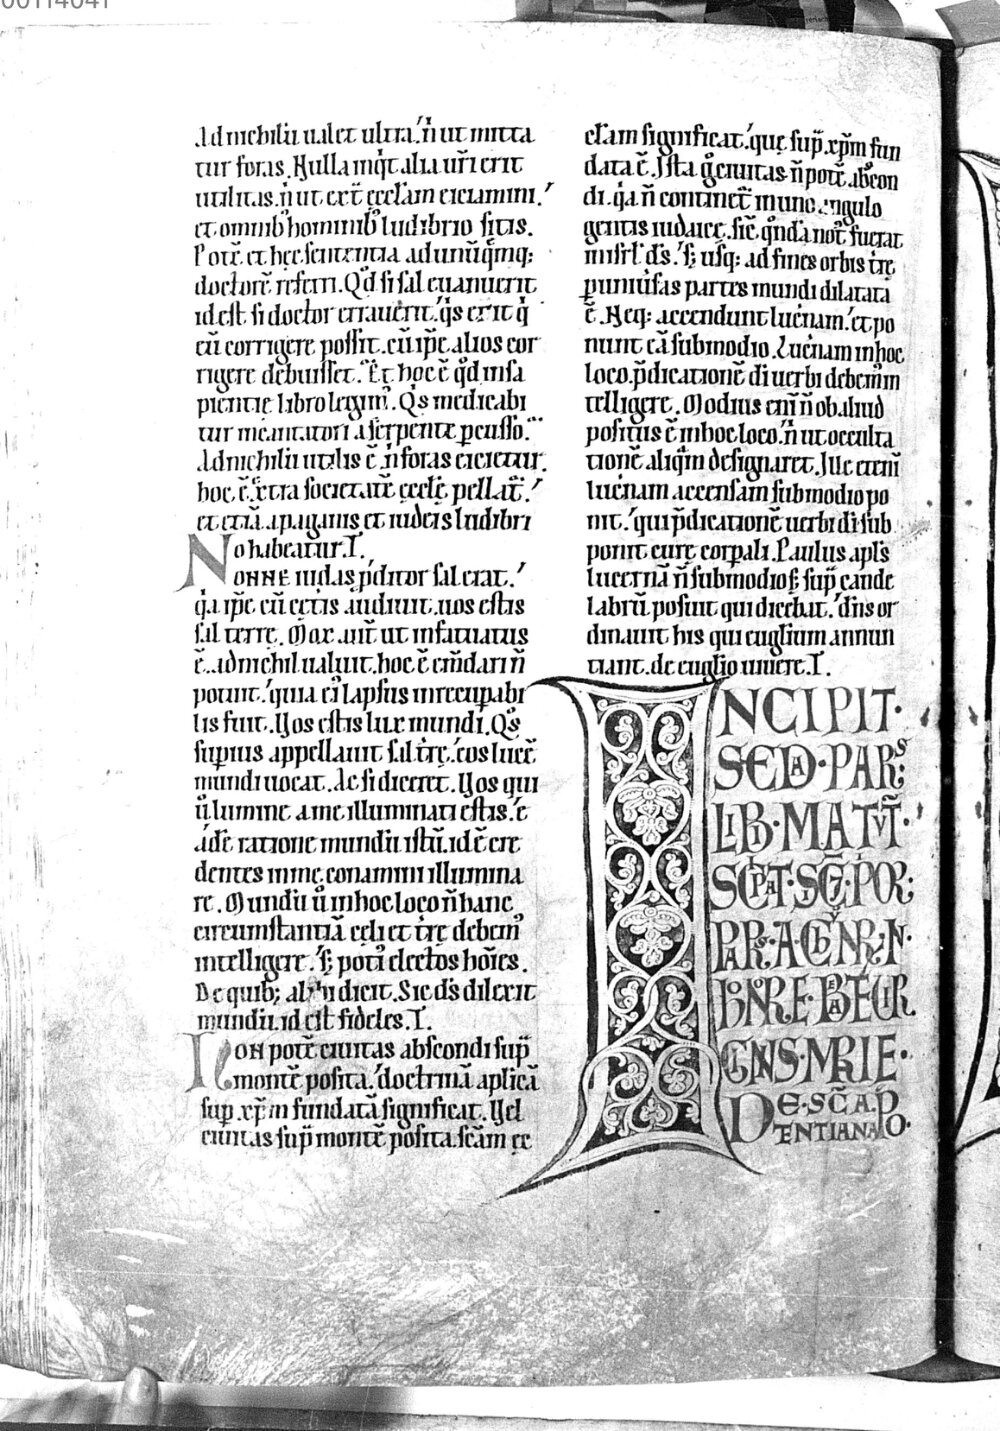 00114041
Ad nichilū ualet ultra.' ñ ut mitta
tur foras. Nulla inq̇t alia ur̄i erit
utilitas. ñ ut ext̄ eccl̄am eiciamini.'
et omnib; hominib; ludibrio sitis.
Potē et hec sententia ad unūq̄mq;
doctorē referri. Qd̄ si sal euanuerit
id est si doctor errauerit.' q̇s erit q̇
eū corrigere possit. cū ip̄e alios cor
rigere debuisset. Et hoc ē q̊d in sa
pientię libro legim'. Q̇s medicabi
tur incantatori a serpente ꝑcusso.
Ad nichilū utilis ē. ñ foras eiciatur.
hoc. ē. ext̄ra societatē eccl̄ę pellat̄.'
et etiā a paganis et iudeis ludibri
o habeatur. T.
NONNE iudas ꝓditor sal erat.'
q̇a ip̄e cū cet̄is audiuit. uos estis
sal terrę. Mox aut̄ ut infatuatus
ē. ad nichil ualuit. hoc ē em̄dari ñ
potuit.' quia ei' lapsus inrecuꝑabi
lis fuit. Vos estis lux mundi. Q̊s
suꝑius appellauit sal tr̄ę.' eos lucē
mundi uocat. Ac si diceret. Vos qui
u̇ lumine a me illuminati estis.' c̄
ade ratione mundū istū. id ē cre
dentes in me. conamini illumina
re. Mundū u̇ in hoc loco ñ hanc
circumstantiā celi et tr̄ę debem'
intelligere. S; poti' electos hoīes.
De quib; alibi dicit. Sic ds̄ dilexit
mundū. id est fideles. T.
NON potē ciuitas abscondi sup̄
montē posita.' doctrinā aplicā
suꝑ xp̄m fundatā significat. Vel
ciuitas sup̄ montē posita. sc̄am ec
cl̄am significat.' quę sup̄ xp̄m fun
data ē. Ista g̊ ciuitas ñ potē abscon
di. q̇a ñ continet̄ in uno angulo
gentis iudaicę. sic̄ q̊nda not̄ fuerat
in isrl̄ ds̄.' S; usq; ad fines orbis tr̄ę
ꝑ uniūsas partes mundi dilatata
ē. Neq; accendunt lucnam.' et po
nunt eā sub modio. Lucnam in hoc
loco. p̄dicationē diuerbi debem' in
telligere. Modius enī ñ ob aliud
positus ē in hoc loco. ñ ut occulta
tionē aliq̄m designaret. Ille etenī
lucnam accensam sub modio po
nit.' qui p̄dicationē uerbi dī sub
ponit curę corp̄ali. Paulus apl̄s
lucernā ñ sub modio s; sup̄ cande
labrū posuit qui dicebat.' dn̄s or
dinauit his qui euglium annun
tiant. de euglio uiuere. T.
INCIPIT
SEDA·PARS
LIB·MATVT̄·
DE·SC̄A·PO
TENTIANA